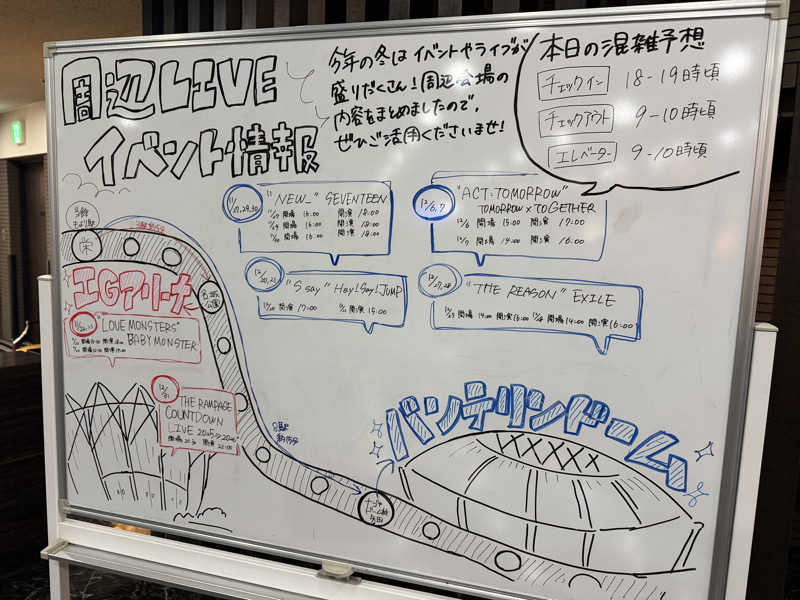 周辺LIVE
イベント情報
今年の冬は イベントやライブが
盛りだくさん！周辺会場の
内容をまとめましたので、
ぜひご活用くださいませ！
本日の混雑予想
チェックイン 18-19時頃
チェックアウト 9-10時頃
エレベーター 9-10時頃
"NEW_" SEVENTEEN
開場 16:00 開演 18:00
開場 16:00 開演 18:00
開場 16:00 開演 18:00
12/6,7
"ACT:TOMORROW"
TOMORROW×TOGETHER
12/6 開場 15:00 開演 17:00
12/7 開場 14:00 開演 16:00
12/20,21
"S say" Hey!Say!JUMP
開演 17:00 開演 15:00
12/27,28
"THE REASON" EXILE
開場 14:00 開演 16:00 開場 14:00 開演 16:00
栄
IGアリーナ
名城
公園
"LOVE MONSTERS"
BABYMONSTER
12/31
THE RAMPAGE
COUNTDOWN
LIVE 2025▷2026
バンテリンドーム
約15分
矢田